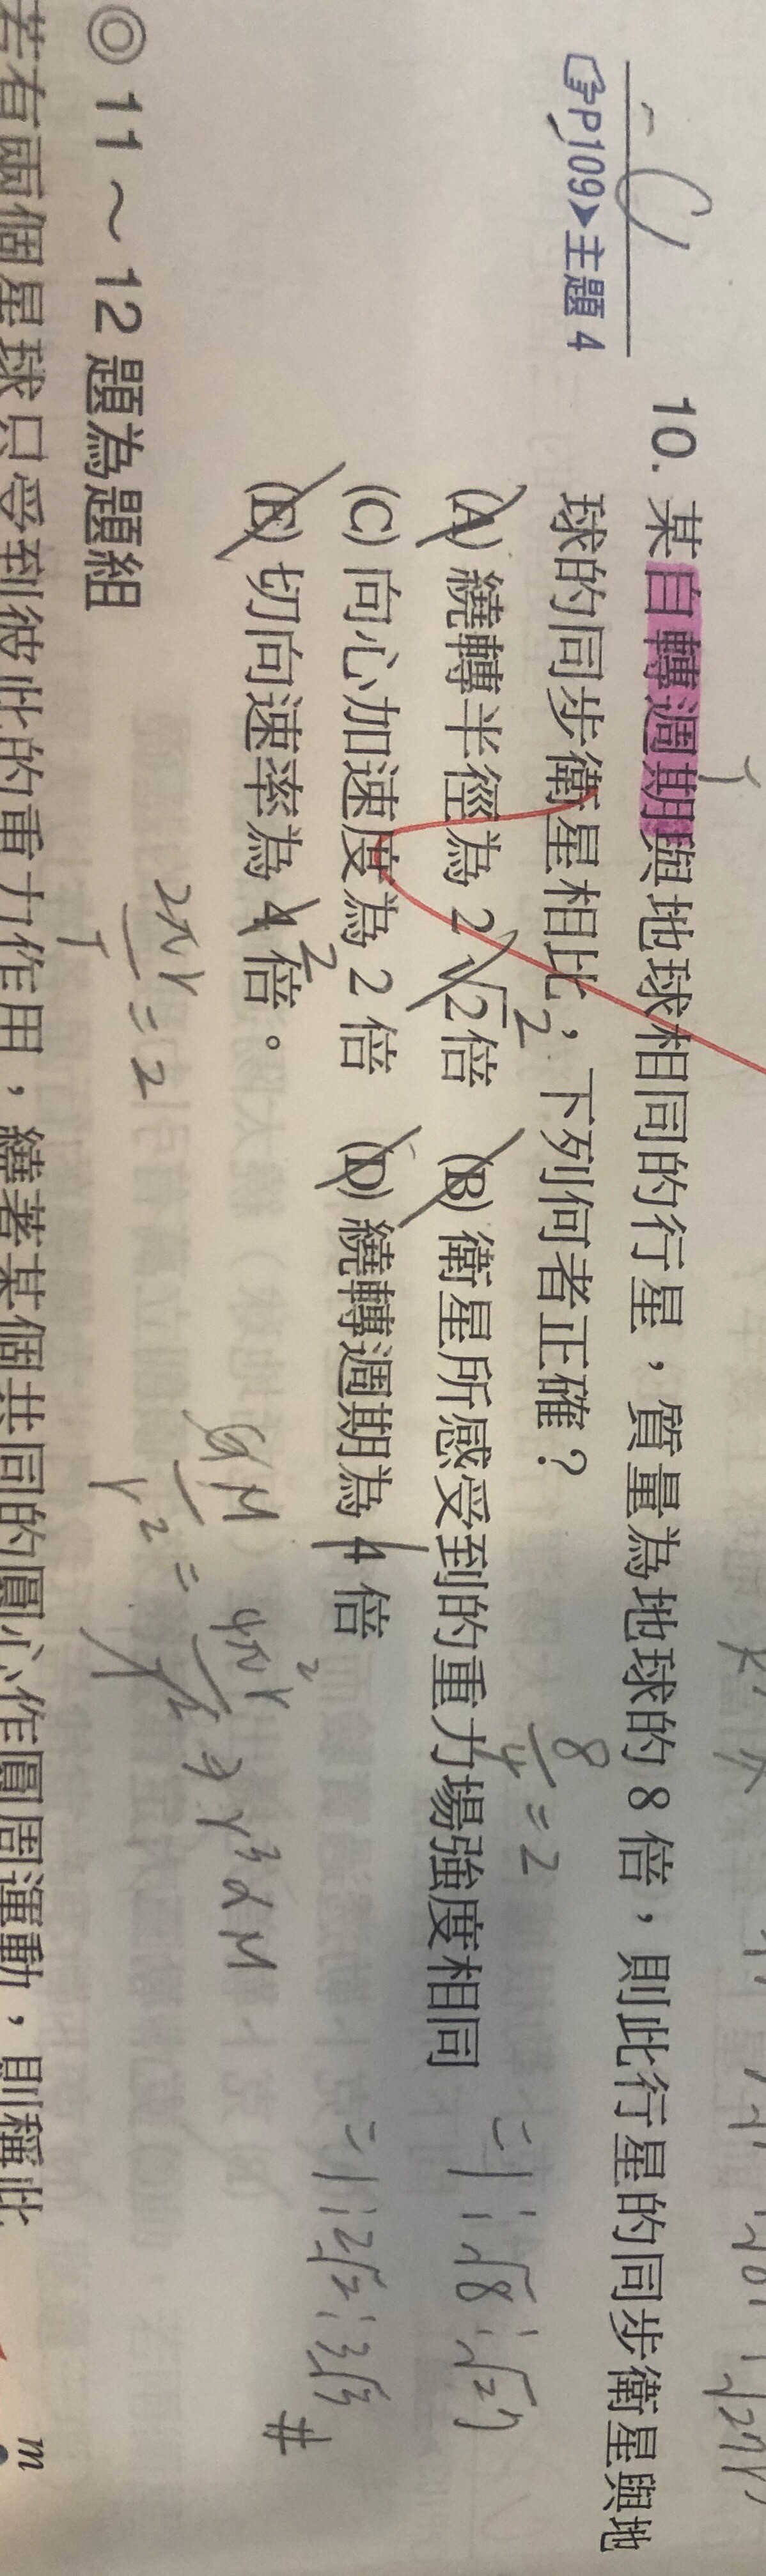 C
☞P.109▶主題 4
10. 某自轉週期與地球相同的行星，質量為地球的 8 倍，則此行星的同步衛星與地
球的同步衛星相比，下列何者正確？
8/4 = 2
(A) 繞轉半徑為 2√2 倍 (B) 衛星所感受到的重力場強度相同
2
= 1 : √8 : √27
(C) 向心加速度為 2 倍 (D) 繞轉週期為 4 倍
= 1 : 2√2 : 3√3 #
(E) 切向速率為 4 倍。
2
2πr/T = 2
GM/r² = 4π²r/T² ⇒ r³ ∝ M
◎ 11～12 題為題組
若有兩個星球只受到彼此的重力作用，繞著某個共同的圓心作圓周運動，則稱此
m